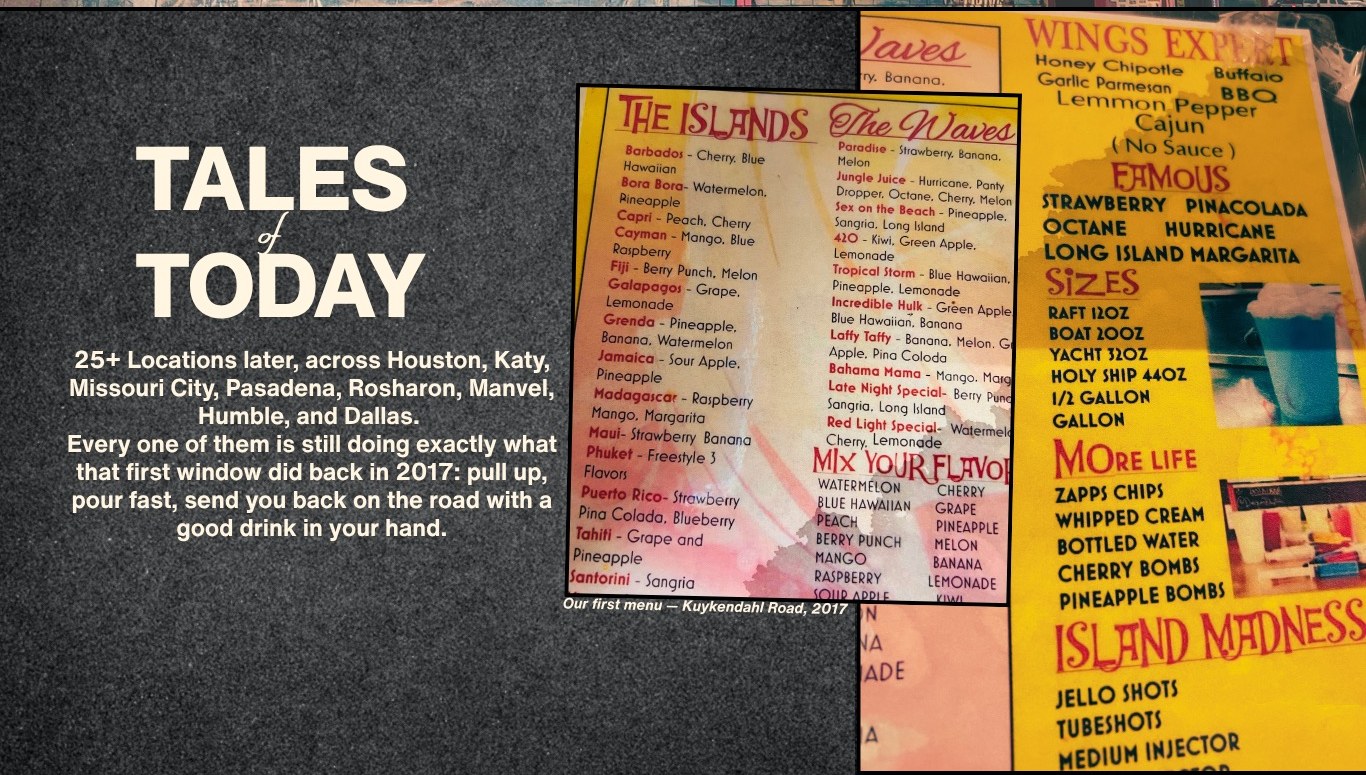 TALES
of
TODAY
25+ Locations later, across Houston, Katy,
Missouri City, Pasadena, Rosharon, Manvel,
Humble, and Dallas.
Every one of them is still doing exactly what
that first window did back in 2017: pull up,
pour fast, send you back on the road with a
good drink in your hand.
THE ISLANDS
Barbados - Cherry, Blue
Hawaiian
Bora Bora- Watermelon,
Pineapple
Capri - Peach, Cherry
Cayman - Mango, Blue
Raspberry
Fiji - Berry Punch, Melon
Galapagos - Grape,
Lemonade
Grenda - Pineapple,
Banana, Watermelon
Jamaica - Sour Apple,
Pineapple
Madagascar - Raspberry
Mango, Margarita
Maui- Strawberry Banana
Phuket - Freestyle 3
Flavors
Puerto Rico- Strawberry
Pina Colada, Blueberry
Tahiti - Grape and
Pineapple
Santorini - Sangria
The Waves
Paradise - Strawberry, Banana,
Melon
Jungle Juice - Hurricane, Panty
Dropper, Octane, Cherry, Melon
Sex on the Beach - Pineapple,
Sangria, Long Island
420 - Kiwi, Green Apple,
Lemonade
Tropical Storm - Blue Hawaiian,
Pineapple, Lemonade
Incredible Hulk - Green Apple
Blue Hawaiian, Banana
Laffy Taffy - Banana, Melon, G
Apple, Pina Coloda
Bahama Mama - Mango, Marg
Late Night Special- Berry Punc
Sangria, Long Island
Red Light Special- Watermelo
Cherry, Lemonade
MIX YOUR FLAVOR
WATERMELON CHERRY
BLUE HAWAIIAN GRAPE
PEACH PINEAPPLE
BERRY PUNCH MELON
MANGO BANANA
RASPBERRY LEMONADE
SOUR APPLE KIWI
Our first menu — Kuykendahl Road, 2017
Waves
rry, Banana,
ON
NA
ADE
A
WINGS EXPERT
Honey Chipotle Buffalo
Garlic Parmesan BBQ
Lemmon Pepper
Cajun
( No Sauce )
FAMOUS
STRAWBERRY PINACOLADA
OCTANE HURRICANE
LONG ISLAND MARGARITA
SIZES
RAFT 12OZ
BOAT 20OZ
YACHT 32OZ
HOLY SHIP 44OZ
1/2 GALLON
GALLON
MORE LIFE
ZAPPS CHIPS
WHIPPED CREAM
BOTTLED WATER
CHERRY BOMBS
PINEAPPLE BOMBS
ISLAND MADNESS
JELLO SHOTS
TUBESHOTS
MEDIUM INJECTOR